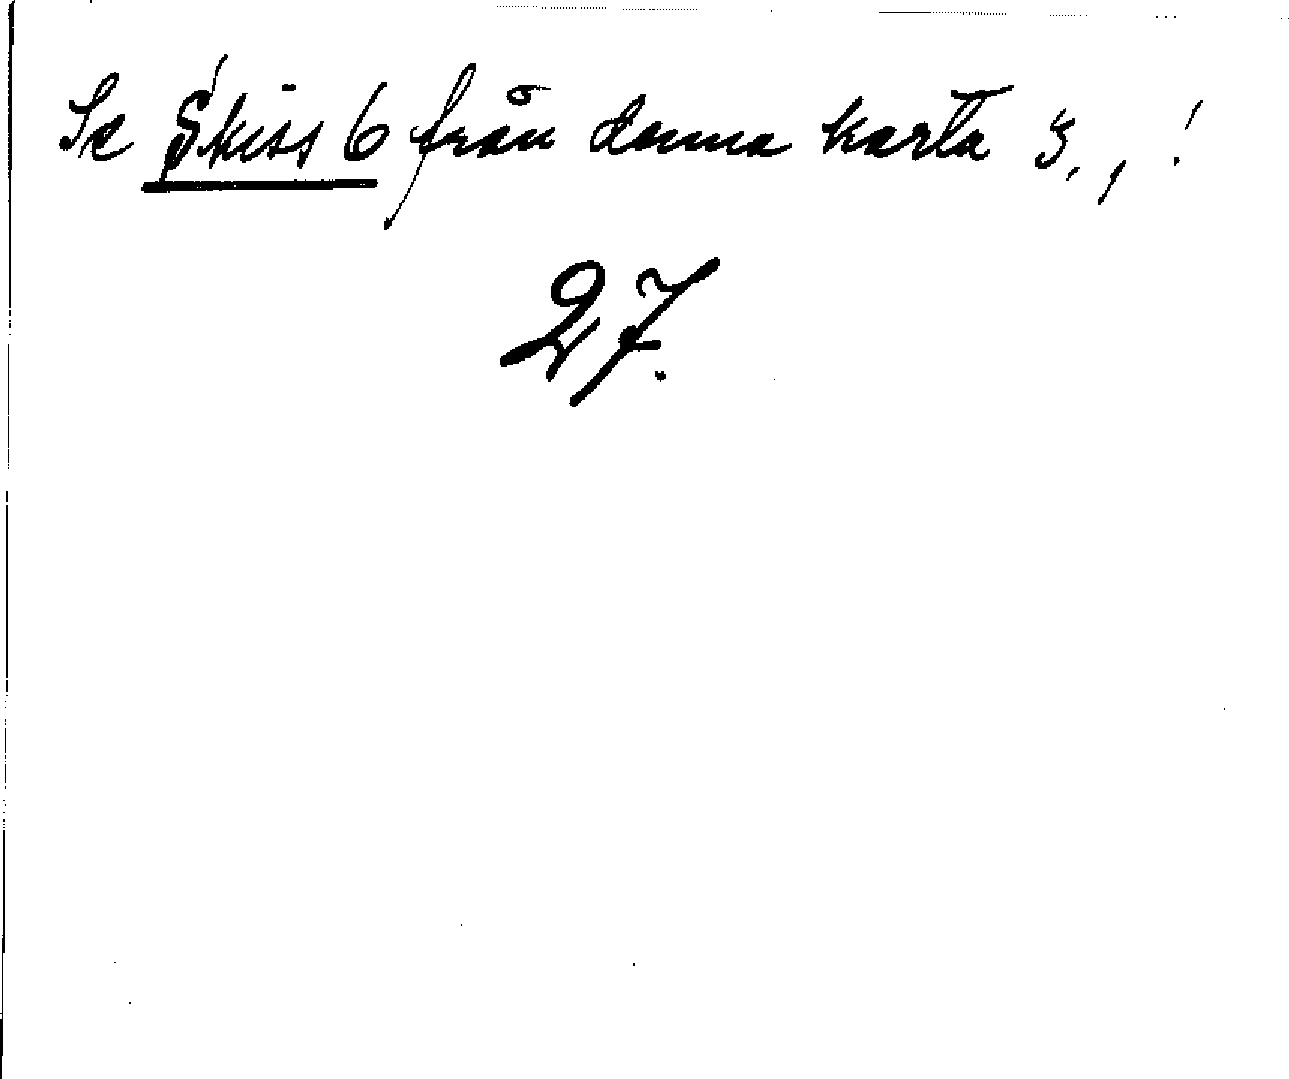 Se Skiss 6 från denna karta 3., !
27.